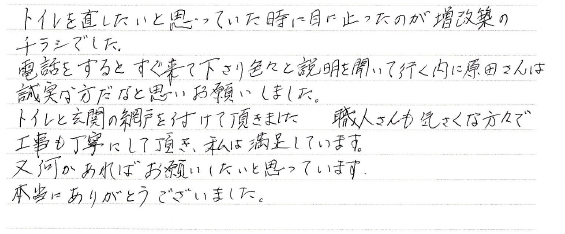 トイレを直したいと思っていた時に目に止ったのが増改築の
チラシでした。
電話をするとすぐ来て下さり色々と説明を聞いて行く内に原田さんは
誠実な方だなと思いお願いしました。
トイレと玄関の網戸を付けて頂きました　職人さんも気さくな方々で
工事も丁寧にして頂き、私は満足しています。
又何かあればお願いしたいと思っています.
本当にありがとうございました。